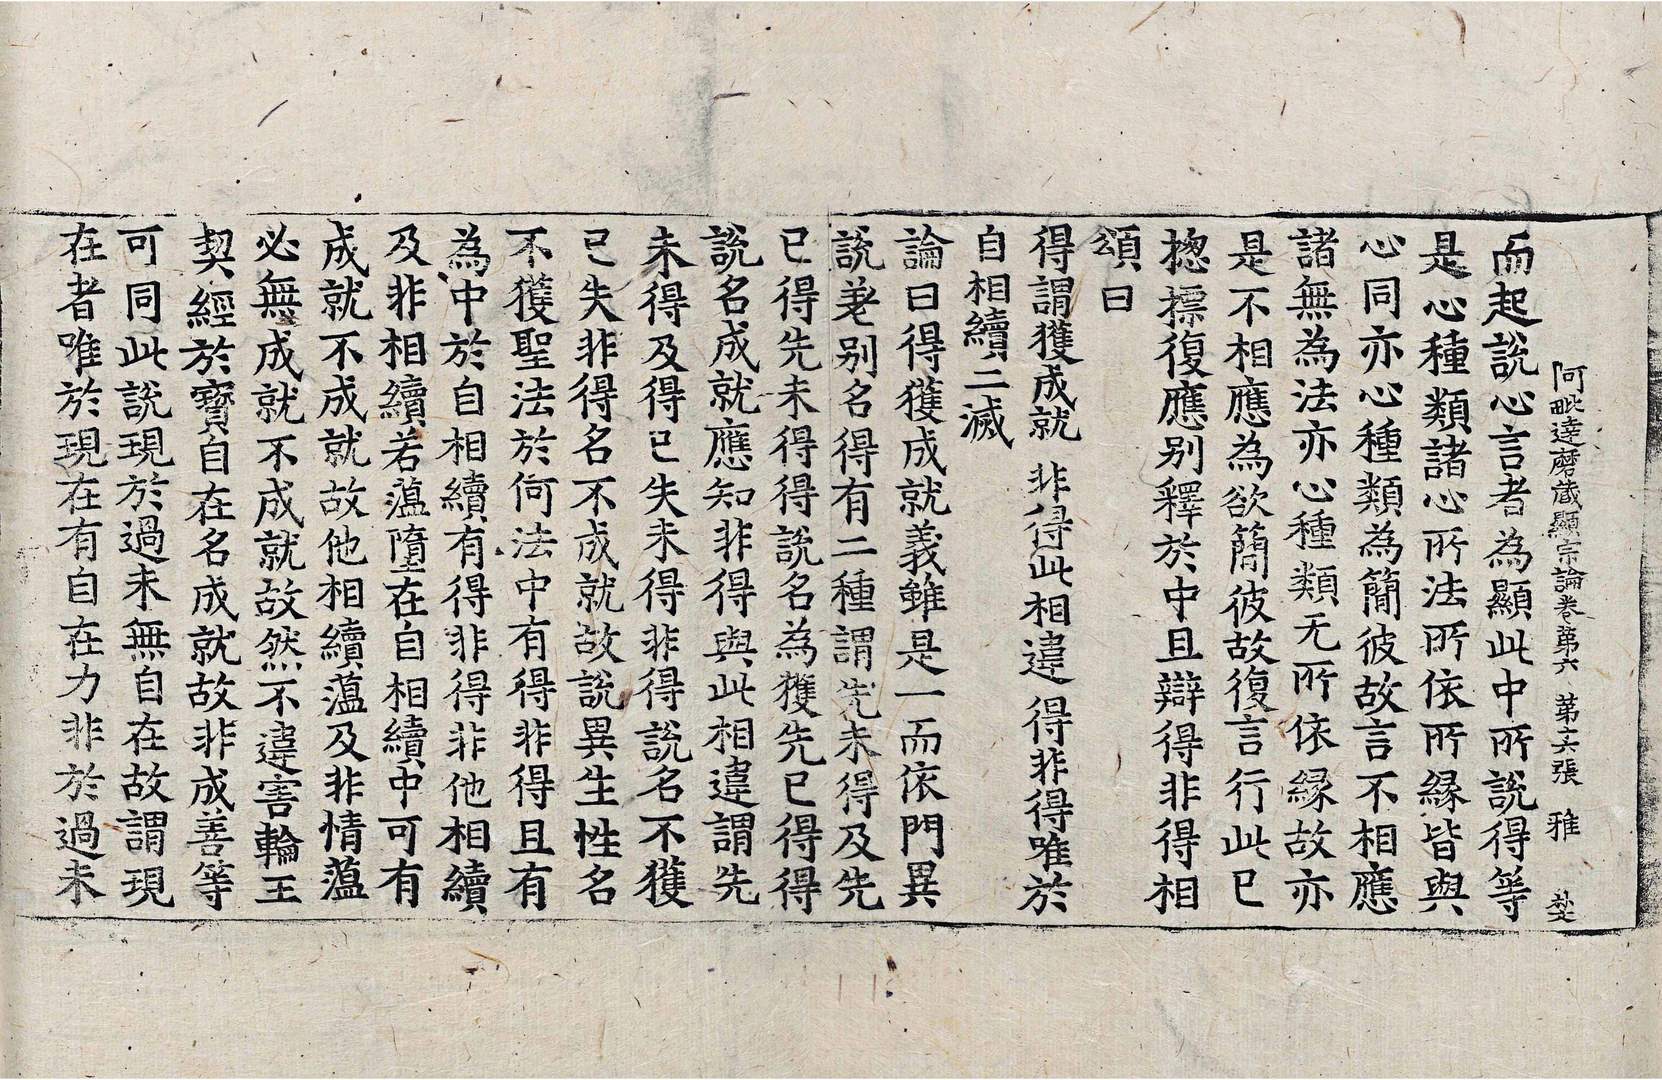 阿毗達磨藏顯宗論卷第六 第六張 雅
而起說心言者為顯此中所說得等
是心種類諸心所法所依所緣皆與
心同亦心種類為簡彼故言不相應
諸無為法亦心種類无所依緣故亦
是不相應為欲簡彼故復言行此已
揔摽復應別釋於中且辯得非得相
頌曰
得謂獲成就 非得此相違 得非得唯於
自相續二滅
論曰得獲成就義雖是一而依門異
說差別名得有二種謂先未得及先
已得先未得得說名為獲先已得得
說名成就應知非得與此相違謂先
未得及得已失未得非得說名不獲
已失非得名不成就故說異生性名
不獲聖法於何法中有得非得且有
為中於自相續有得非得非他相續
及非相續若薀墮在自相續中可有
成就不成就故他相續薀及非情薀
必無成就不成就故然不違害輪王
契經於寶自在名成就故非成善等
可同此說現於過未無自在故謂現
在者唯於現在有自在力非於過未